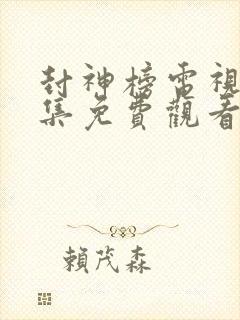 封神榜雷視
集免費觀看
賴茂森